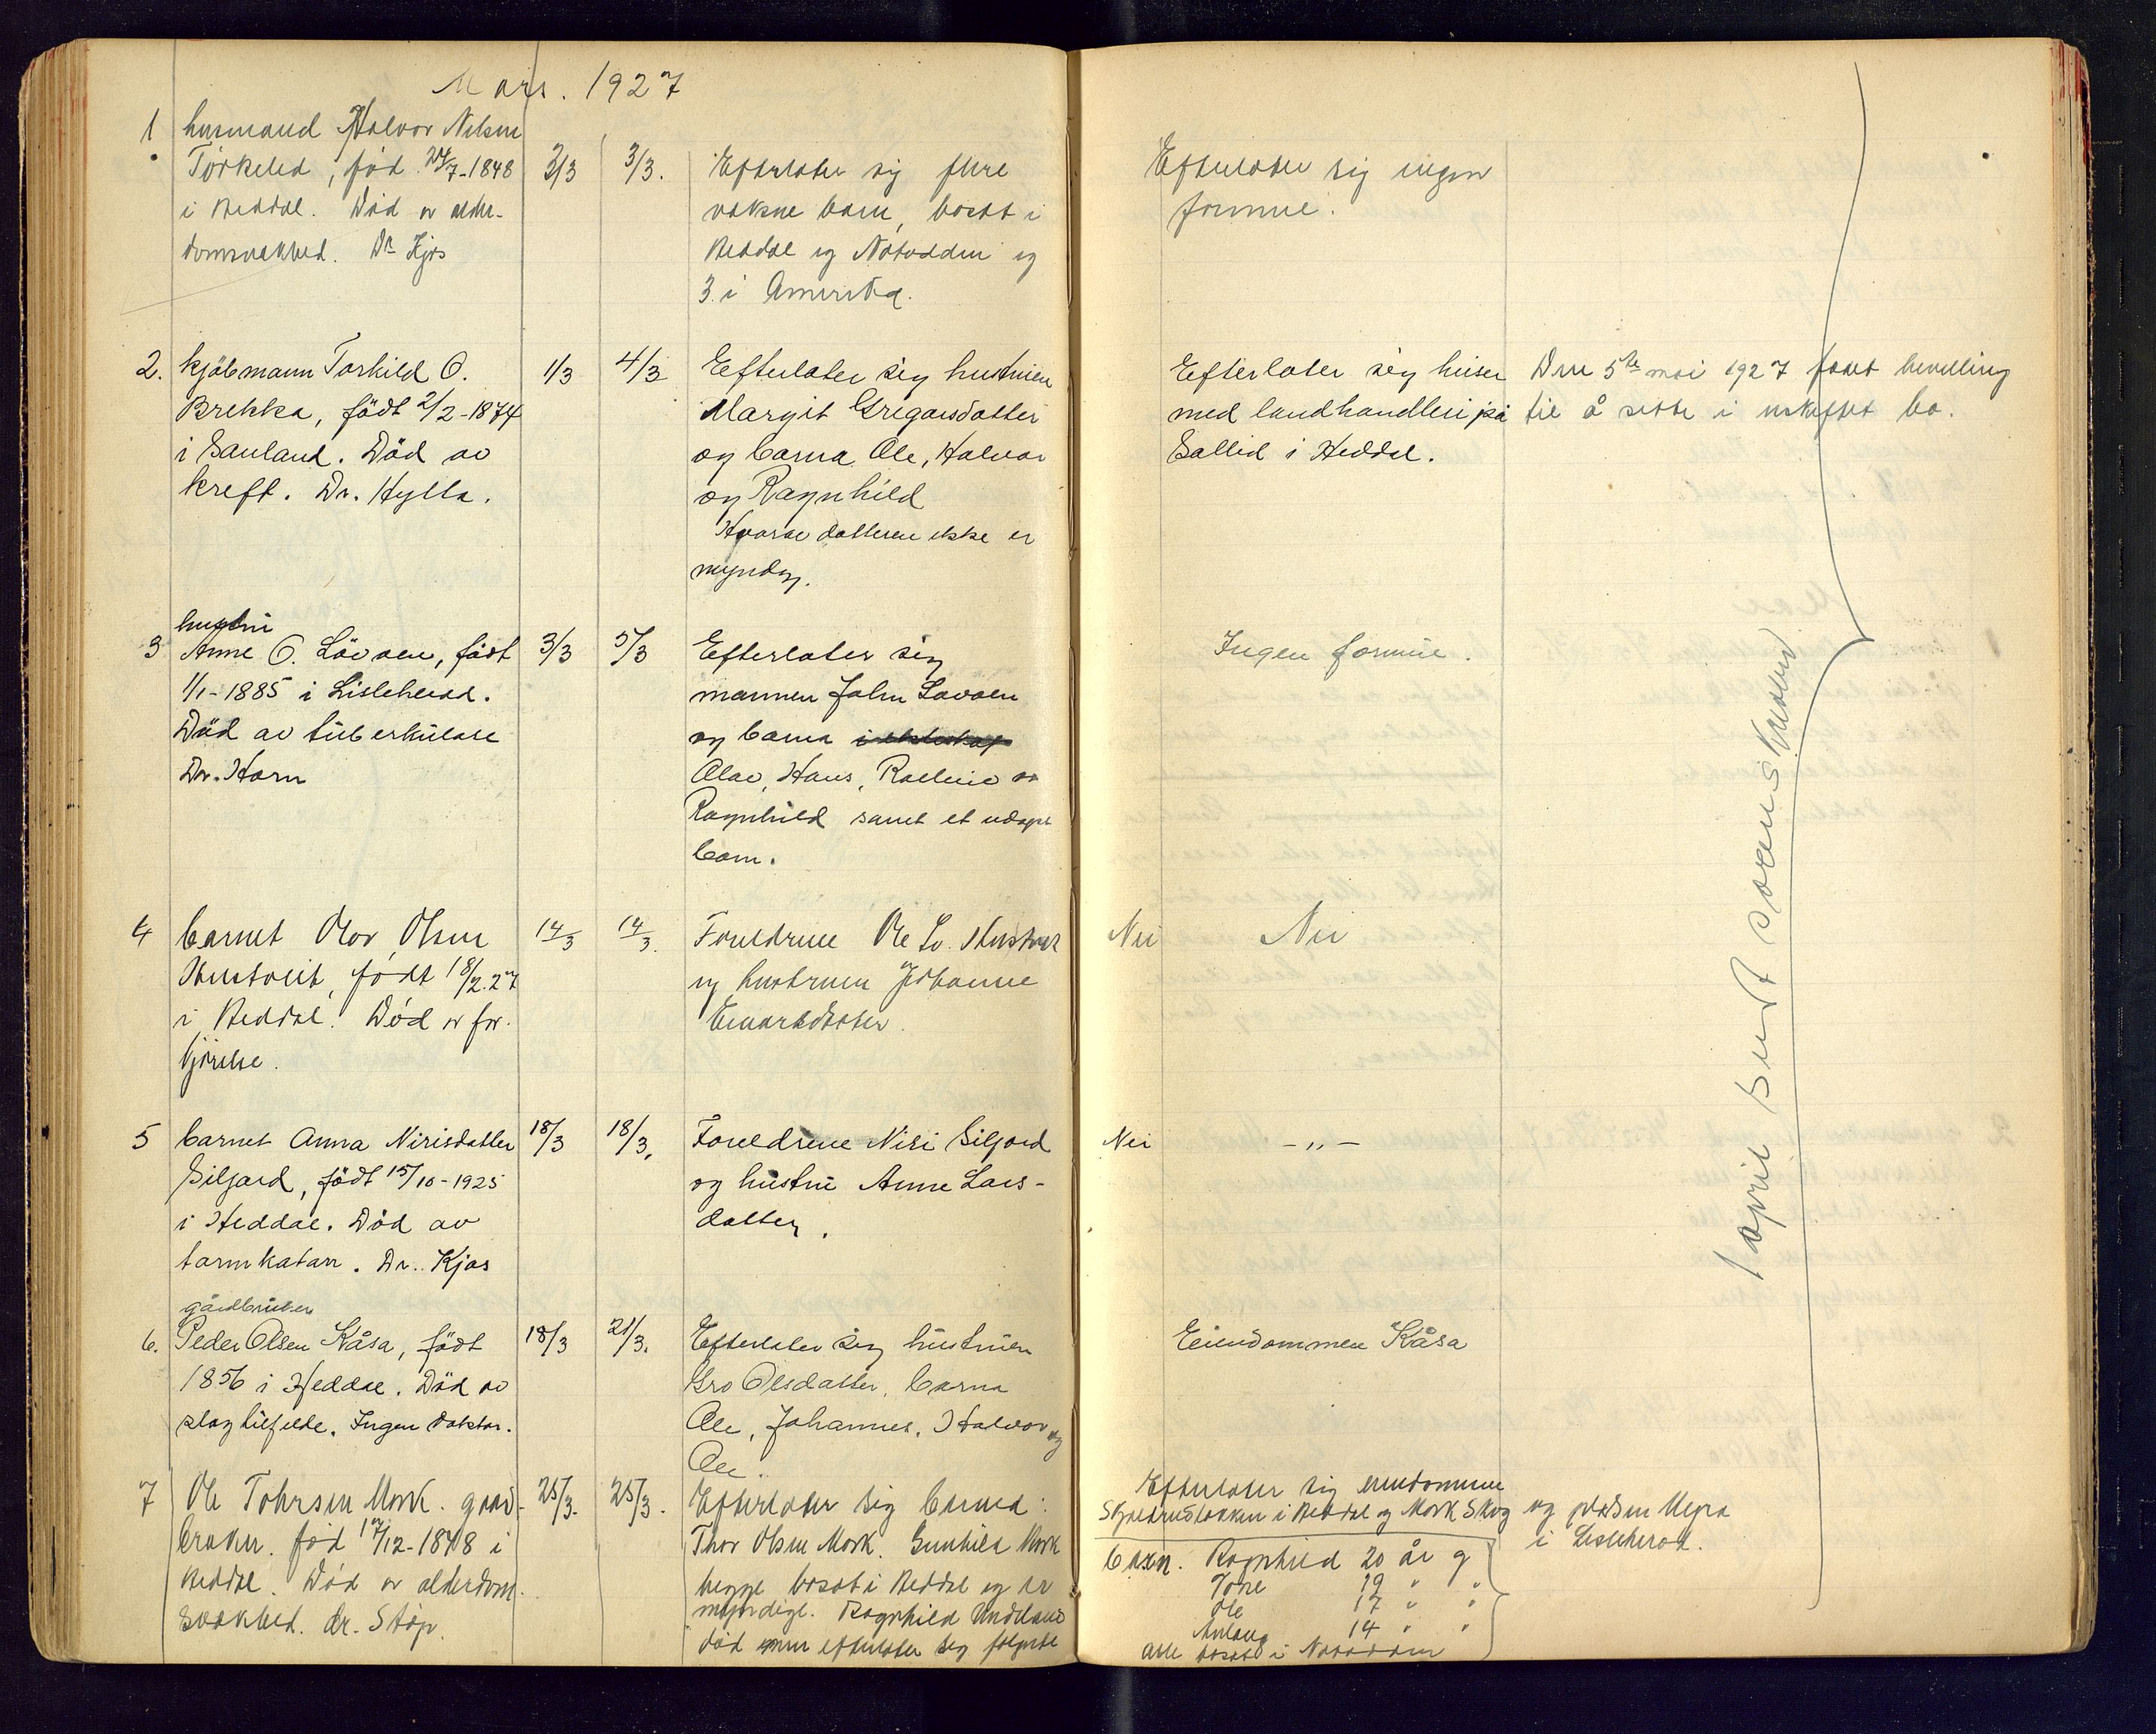 Mars. 1927
1 husmand Halvor Nilsen
Törkelid, född 24/7-1848 2/3 3/3. Efterlater sig flere
i Heddal. Död av alder-
domsvakhed. Dr Kjos
voksne barn, bosat i
Heddal og Notodden og
3 i Amerika.
Efterlater sig ingen
formue.
2. Kjöbmann Torkild O. 1/3 4/3 Efterlater seg hustruen
Brekka, födt 2/2-1874
i Sauland. Död av
kreft. Dr. Hylla.
Margit Gregarsdatter
og barna Ole, Halvor
og Ragnhild
Hvorav datteren ikke er
myndig.
Efterlater seg huser
med landhandleri på
Sallid i Heddal.
Den 5te mai 1927 fået bevilling
til å sitte i uskiftet bo.
hustru
3 Anne O. Lövaen, födt 3/3 5/3 Efterlater seg
1/1-1885 i Lisleherad.
Död av tüberkülose
Dr. Horn
mannen John Lövaen
og barna
Olav, Hans, og
Ragnhild samt et udöpt
barn.
Ingen formue.
4 barnet Olov Olsen 14/3 14/3. Foreldrene Ole
födt 18/2.27
i Heddal. Död av for-
og hustruen Johanne
Nei Nei
5 barnet Anna Nirisdatter 18/3 18/3. Foreldrene Niri Siljord
Siljord, födt 15/10-1925
i Heddal. Död av
tarmkatarr. Dr. Kjos
og hustru Anne Lars-
datter.
Nei -„-
gårdbruker
6. Peder Olsen Kåsa, födt 18/3 21/3. Efterlater seg hustruen
1856 i Heddal. Död av
slagtilfelde. Ingen doktor.
Gro Olsdatter, barna
Ole, Johannes, Halvor og
Ole.
Eiendommen Kåsa
7 Ole Tohrsen Mork. gaard- 25/3. 25/3. Efterlater sig barna:
bruker. föd 17/12-1848 i
Heddal. Död av alderdom.
svakhed. dr. Stöp.
Thor Olsen Mork. Gunhild Mork
begge bosat i Heddal og er
myndige. Ragnhild Undeland
död men efterlater sig følgende
Efterlater sig eiendommene
i Heddal og Mork Skog og pladsen
i Lisleherad.
barn. Ragnhild 20 år g
Tone 19 " "
Ole 17 " "
Aslaug 14 " "
alle bosat i Notodden
1 april sendt sorenskriveren